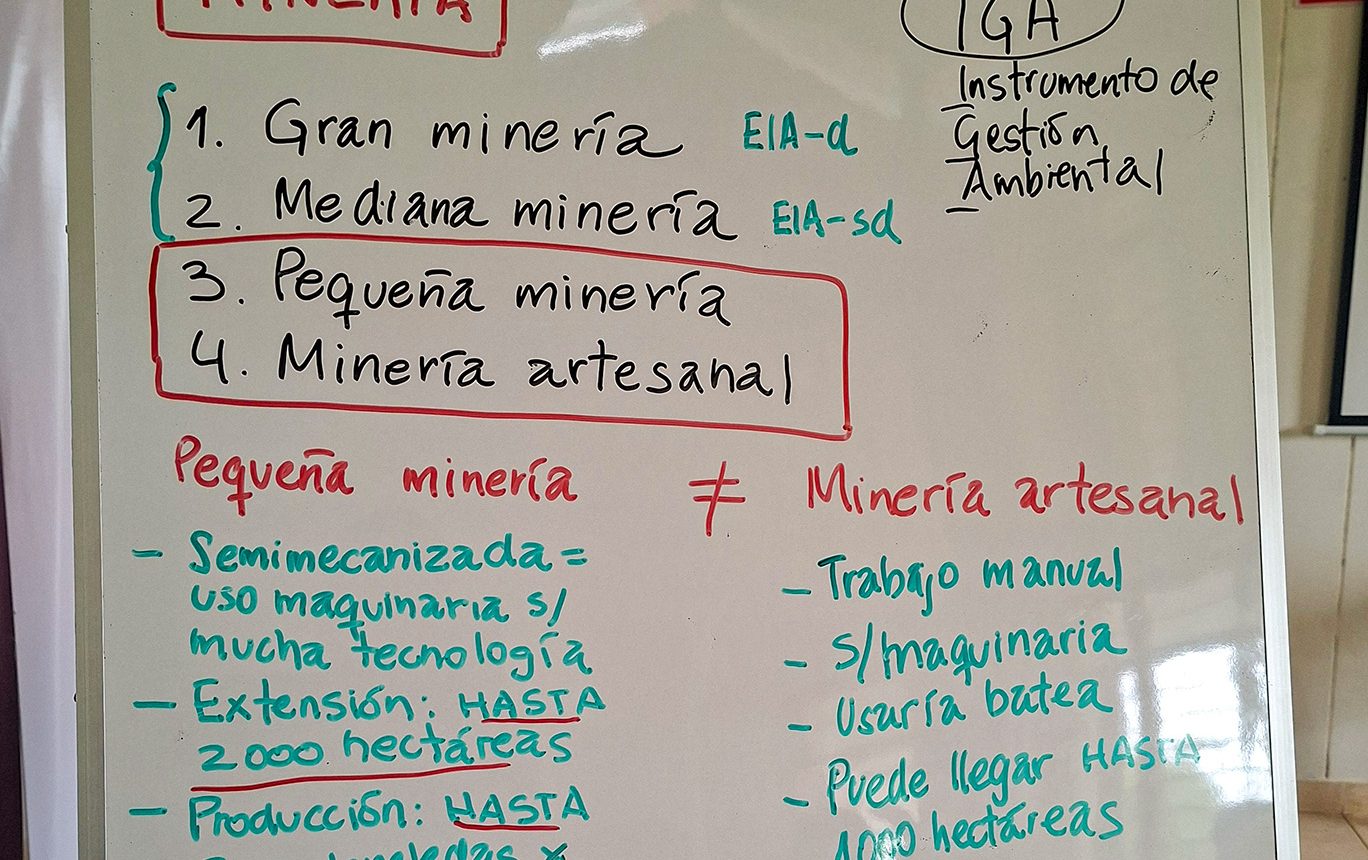 MINERÍA
IGA
Instrumento de
Gestión
Ambiental
1. Gran minería EIA-d
2. Mediana minería EIA-sd
3. Pequeña minería
4. Minería artesanal
Pequeña minería ≠ Minería artesanal
- Semimecanizada =
uso maquinaria s/
mucha tecnología
- Extensión: HASTA
2000 hectáreas
- Producción: HASTA
- Trabajo manual
- s/maquinaria
- Usaría batea
- Puede llegar HASTA
1000 hectáreas